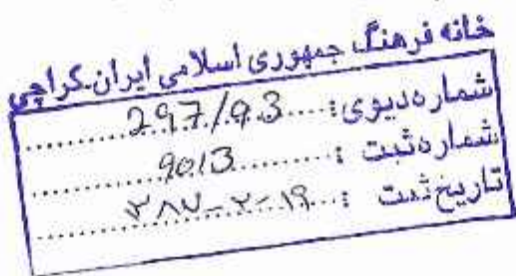 خانه فرهنگ جمهوری اسلامی ایران۔کراچی
شماره دیوی: 297/.93
شماره ثبت : 9013
تاریخ ثبت : ۳۸۷-۲-۱۹